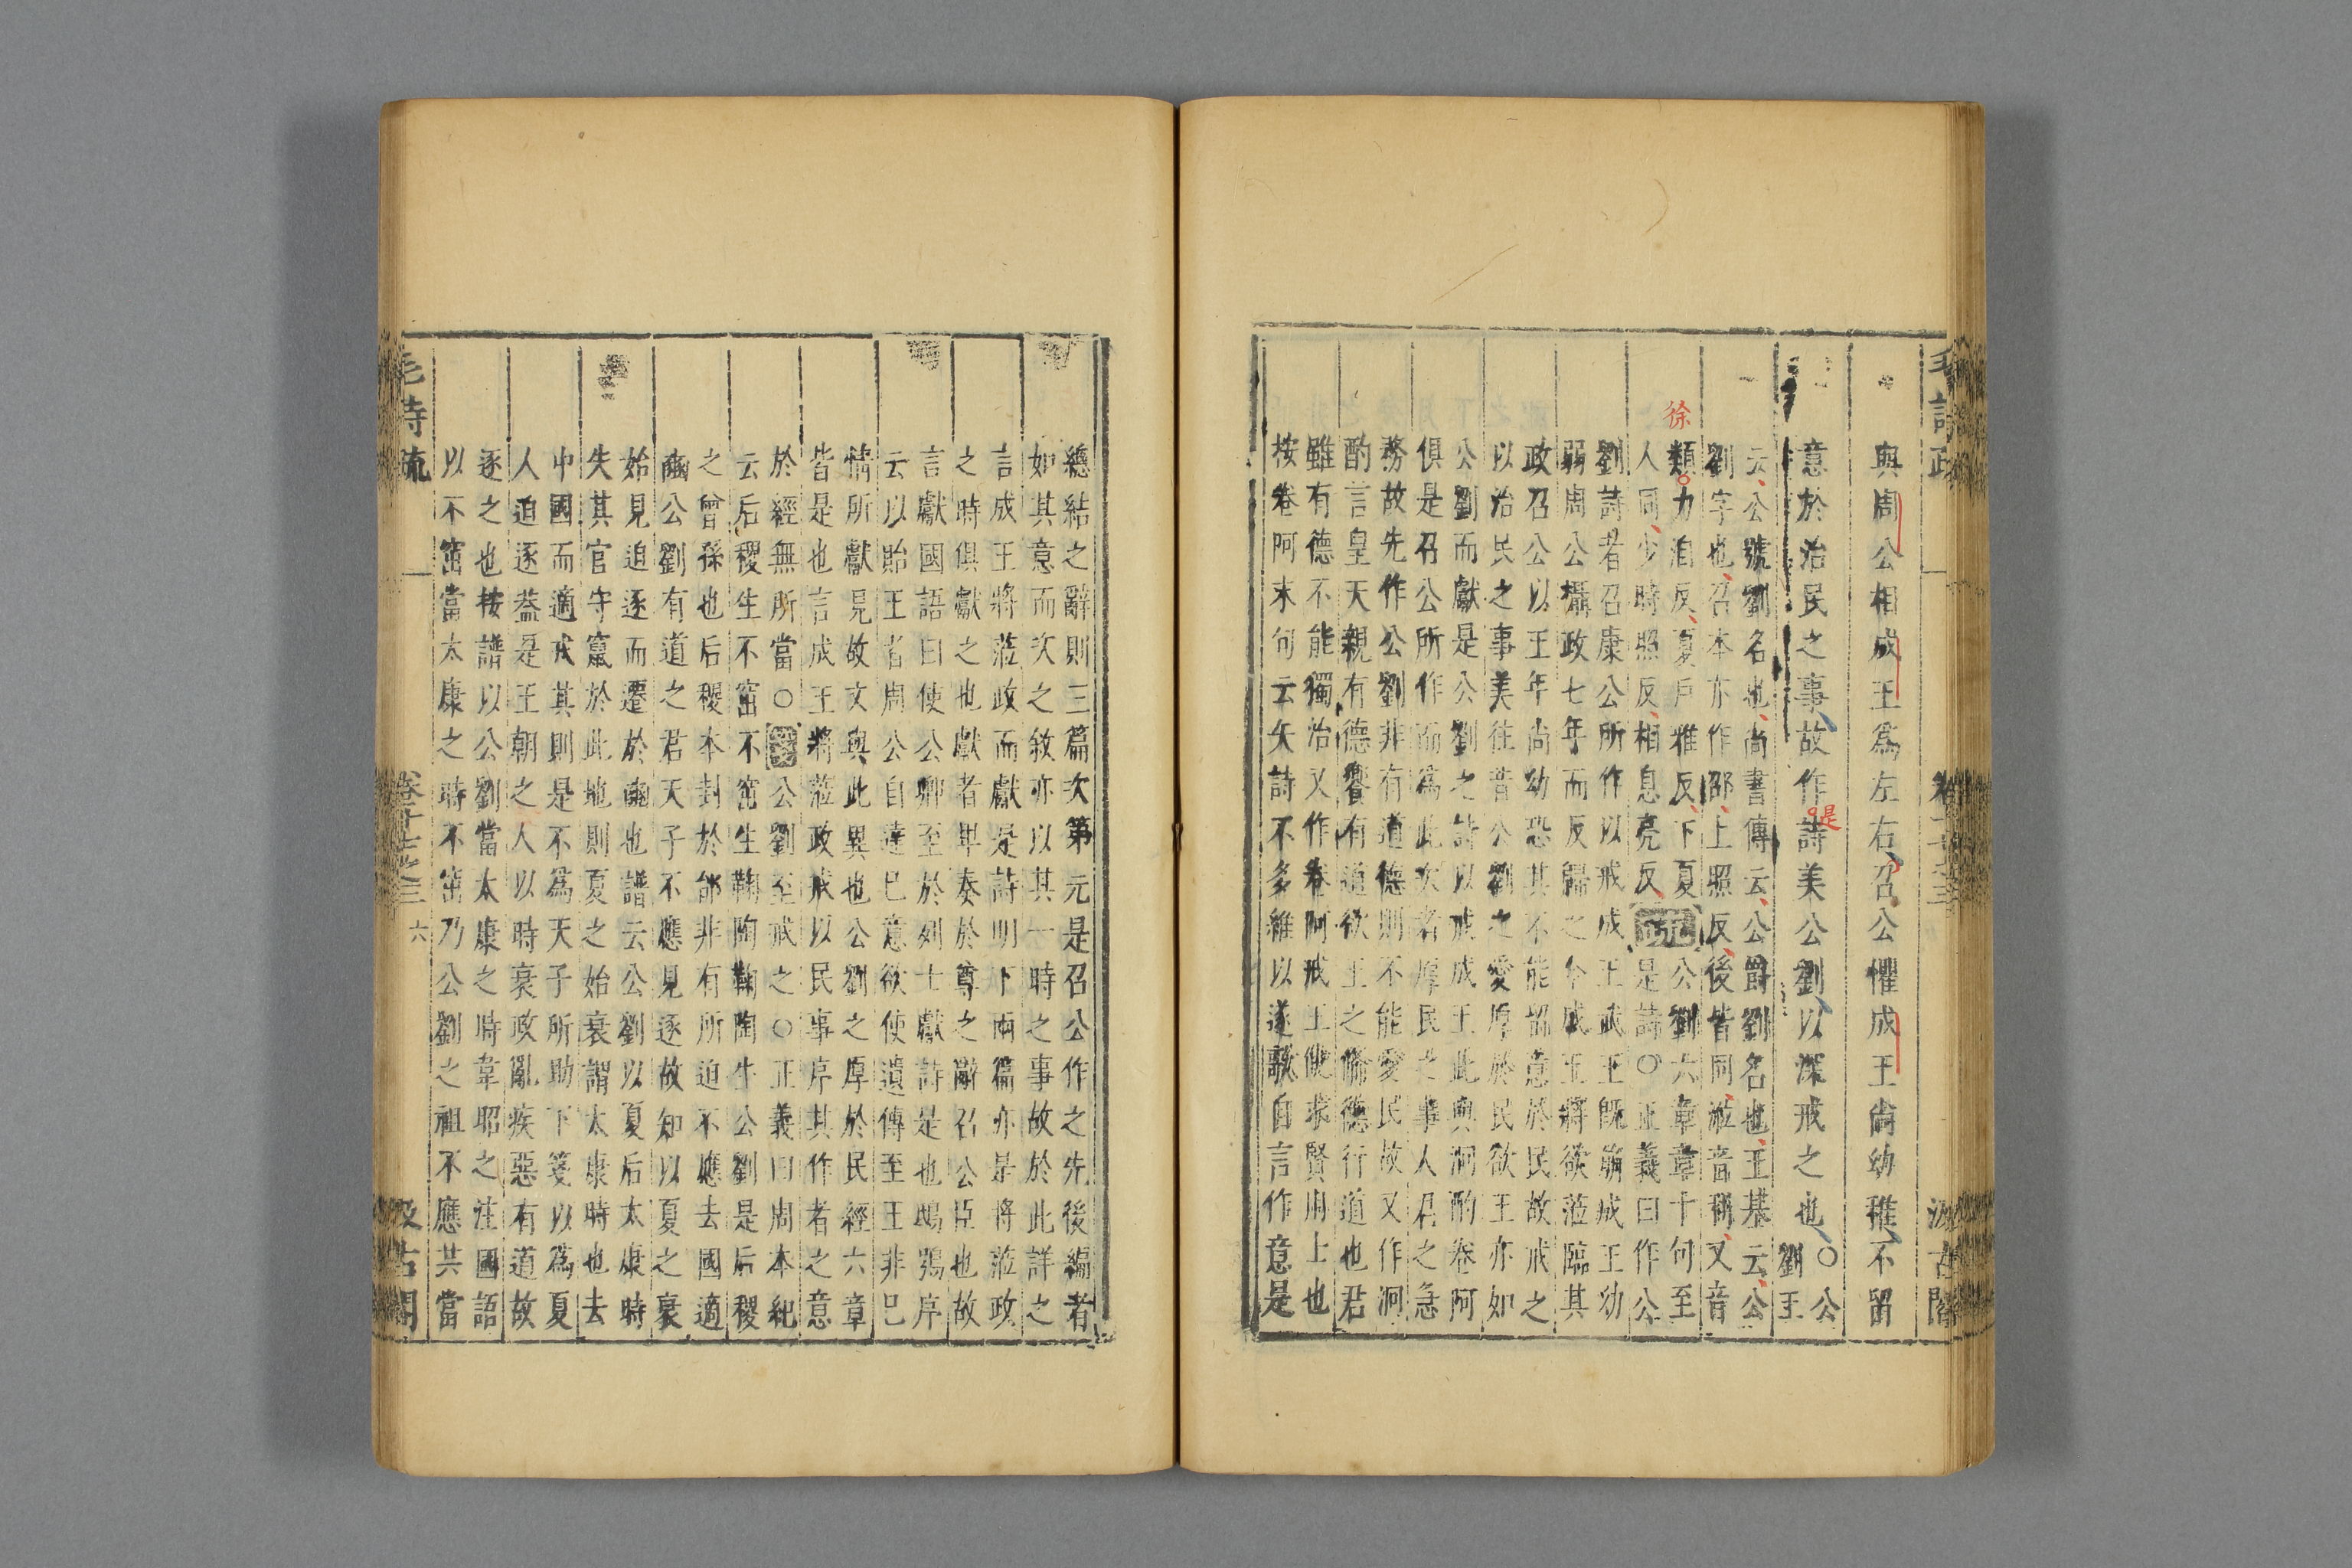 與周公相成王爲左右召公懼成王尚幼稚不留
意於治民之事故作詩美公劉以深戒之也○公
劉王
是
云公號劉名也尚書傳云公爵劉名也王基云公
劉字也召本亦作邵上照反後皆同涖音利又音
徐
類力洎反夏戶雅反下夏
人同少時照反相息亮反
疏
公劉六章章十句至
是詩○正義曰作公
劉詩者召康公所作以戒成王武王既崩成王幼
弱周公攝政七年而反歸之今成王將欲涖臨其
政召公以王年尚幼恐其不能留意於民故戒之
以治民之事美往昔公劉之愛厚於民欲王亦如
公劉而獻是公劉之詩以戒成王此與泂酌卷阿
俱是召公所作而爲此次者厚民之事人君之急
務故先作公劉非有道德則不能愛民故又作泂
酌言皇天親有德饗有道欲王之脩德行道也君
雖有德不能獨治又作卷阿戒王使求賢用上也
按卷阿末句云矢詩不多維以遂歌自言作意是
總結之辭則三篇次第元是召公作之先後編者
如其意而次之敘亦以其一時之事故於此詳之
言成王將涖政而獻是詩明下兩篇亦是將涖政
之時俱獻之也獻者卑奏於尊之辭召公臣也故
言獻國語曰使公卿至於列士獻詩是也鴟鴞序
云以貽王者周公自達巳意欲使遺傳至王非巳
情所獻見故文與此異也公劉之厚於民經六章
皆是也言成王將涖政戒以民事序其作者之意
於經無所當○箋公劉至戒之○正義曰周本紀
云后稷生不窋不窋生鞠陶鞠陶生公劉是后稷
之曾孫也后稷本封於邰非有所迫不應去國適
豳公劉有道之君天子不應見逐故知以夏之衰
始見迫逐而遷於豳也譜云公劉以夏后太康時
失其官守竄於此地則夏之始衰謂太康時也去
中國而適戎其則是不爲天子所助下箋以爲夏
人迫逐葢是王朝之人以時衰政亂疾惡有道故
逐之也按譜以公劉當太康之時韋昭之注國語
以不窋當太康之時不窋乃公劉之祖不應共當
毛詩疏
卷十七之三
六
汲古閣